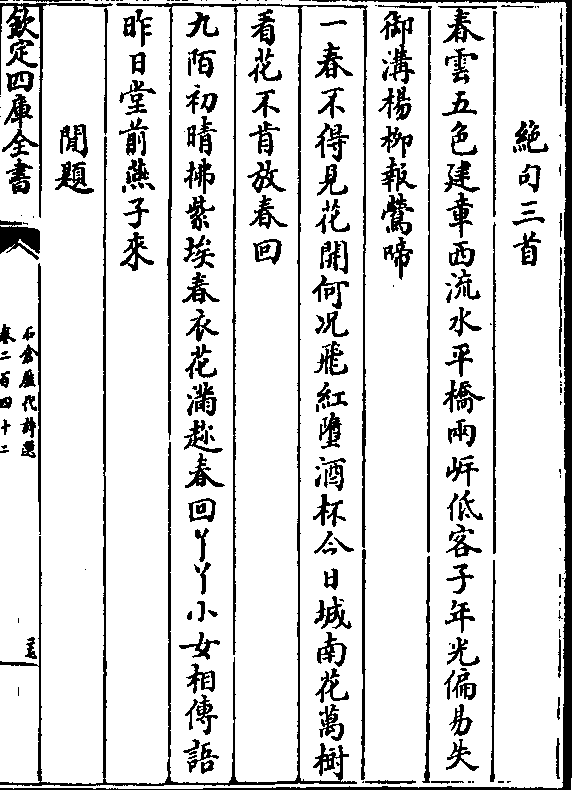 絶句三首
春雲五色建章西流水平橋兩岍低客子年光偏易失
御溝楊柳報鶯啼
一春不得見花開何况飛紅墮酒杯今日城南花萬樹
看花不肯放春回
九陌初晴拂紫埃春衣花滿趂春回丫丫小女相傳語
昨日堂前燕子來
閒題
欽定四庫全書
石倉歷代詩選
卷二百四十二